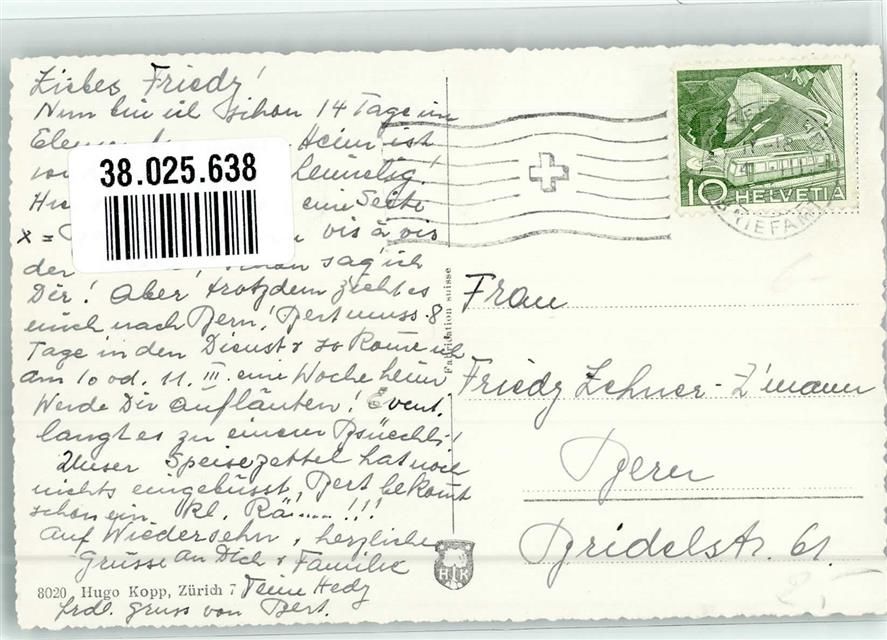 Liebes Friedy!
Nun bin ich schon 14 Tage im
Heim ist
heimelig!
eine Seite
x = vis à vis
der sag' ich
Dir! Aber trotzdem zieht es
mich nach Bern! Bert muss 8
Tage in den Dienst & so komme ich
am 10 od. 11. III. eine Woche heim
Werde Dir aufläuten! Event.
langt es zu einem Bsüechli!
Unser Speisezettel hat noch
nichts eingebüsst, Bert bekommt
schon ein kl. Rä.....!!!
Auf Wiedersehn, herzliche
Grüsse an Dich & Familie
Deine Hedy
frdl. Gruss von Bert.
38.025.638
8020 Hugo Kopp, Zürich 7
Fabrication suisse
HK
10 HELVETIA
Frau
Friedy Zehner-Z'mann
Bern
Bridelstr. 61.